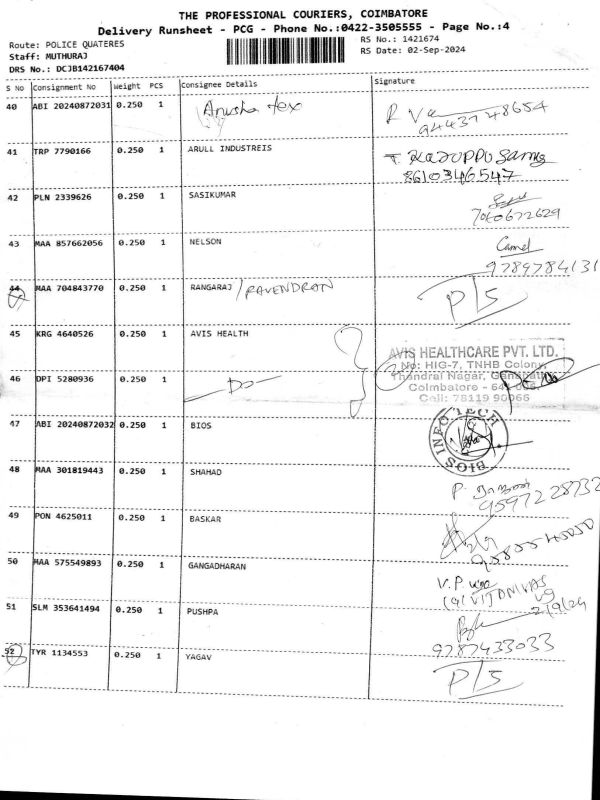 THE PROFESSIONAL COURIERS, COIMBATORE
Delivery Runsheet - PCG - Phone No.:0422-3505555 - Page No.:4
Route: POLICE QUATERES
RS No.: 1421674
Staff: MUTHURAJ
RS Date: 02-Sep-2024
DRS No.: DCJB142167404
S No Consignment No Weight PCS Consignee Details Signature
40 ABI 20240872031 0.250 1 Anusha tex
9443748654
41 TRP 7790166 0.250 1 ARULL INDUSTREIS T. KARUPPUSamy
8610346547
42 PLN 2339626 0.250 1 SASIKUMAR
7010672629
43 MAA 857662056 0.250 1 NELSON
9789784131
44 MAA 704843770 0.250 1 RANGARAJ / RAVENDRAN P/S
45 KRG 4640526 0.250 1 AVIS HEALTH
AVIS HEALTHCARE PVT. LTD.
No: HIG-7, TNHB Colony,
46 DPI 5280936 0.250 1 - Do -
Nagar,
Coimbatore -
Cell: 78119 90066
47 ABI 20240872032 0.250 1 BIOS
BIOS INFO TECH
48 MAA 301819443 0.250 1 SHAHAD
9597228732
49 PON 4625011 0.250 1 BASKAR
50 MAA 575549893 0.250 1 GANGADHARAN
V.P
51 SLM 353641494 0.250 1 PUSHPA
2/9/24
9787433033
52 TYR 1134553 0.250 1 YAGAV P/S